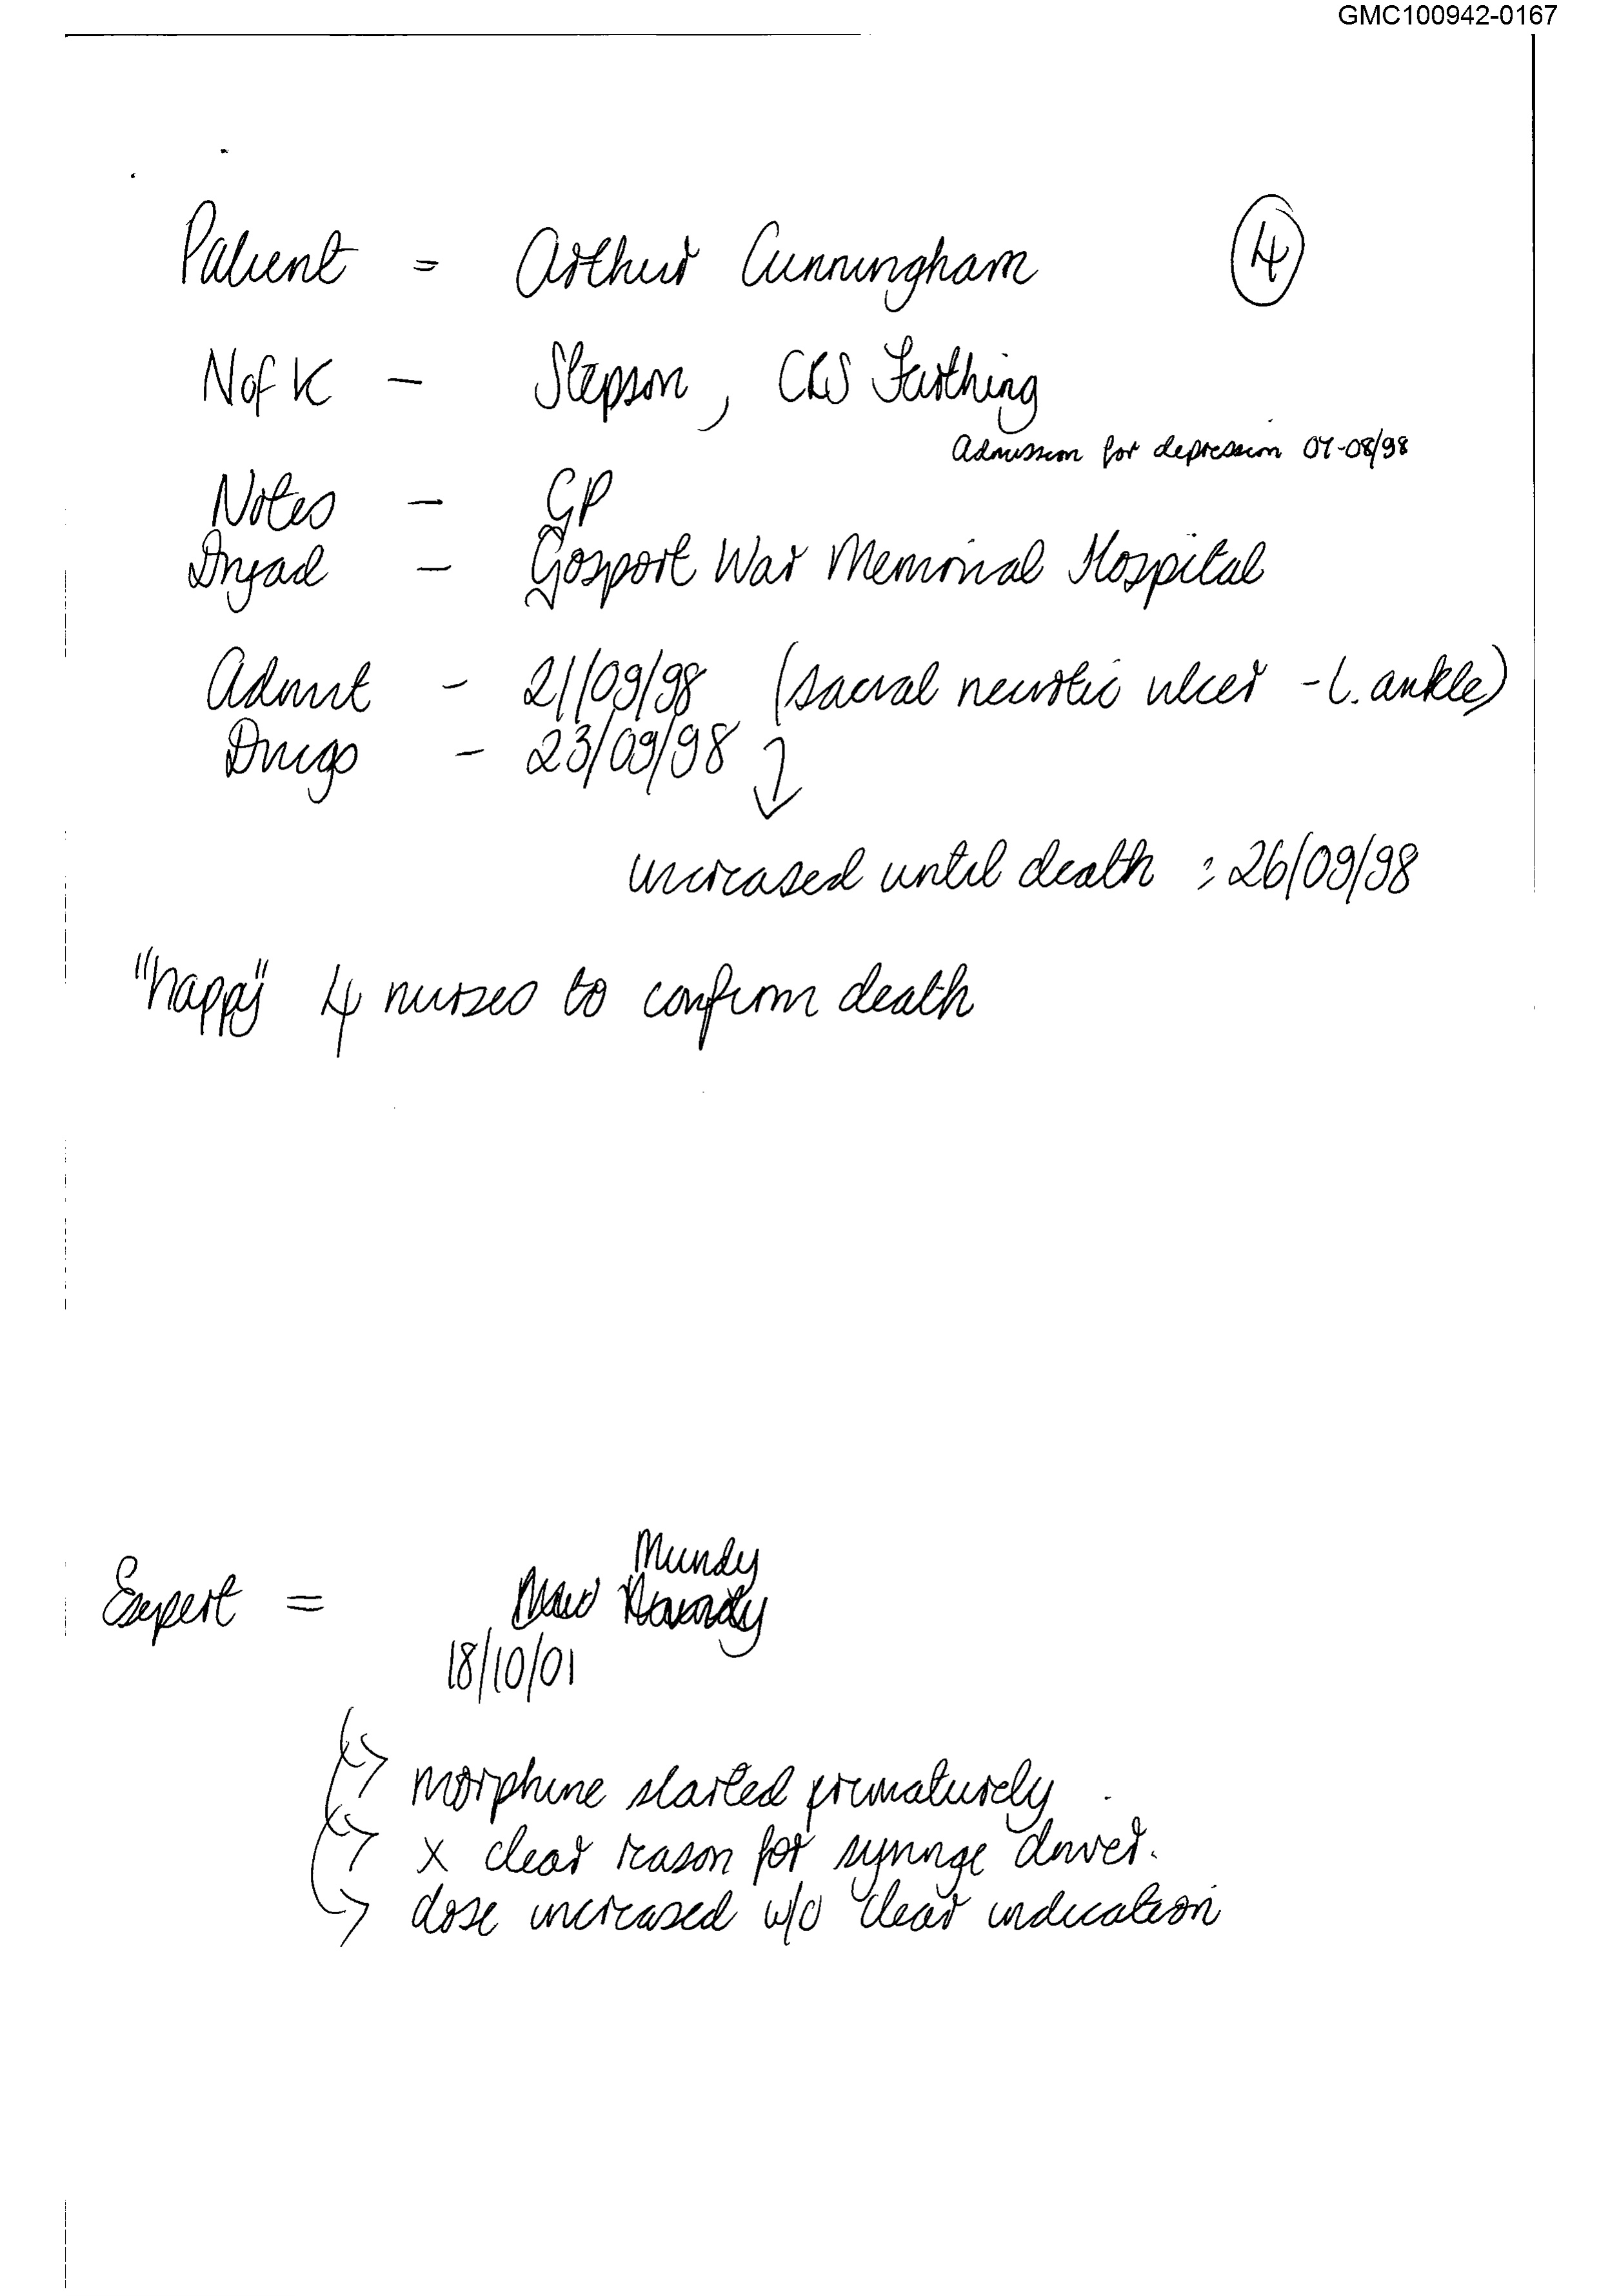 GMC100942-0167
Patient = Arthur Cunningham ④
N of K - Stepson, C R S Farthing
Admission for depression 07-08/98
Notes - GP
Dryad - Gosport War Memorial Hospital
Admit - 21/09/98 (sacral necrotic ulcer - L. ankle)
Drugs - 23/09/98 ↓
increased until death : 26/09/98
"happy" 4 nurses to confirm death
Mundy
Expert =
18/10/01
↳ morphine started prematurely
↳ x clear reason for syringe driver.
↳ dose increased w/o clear indication